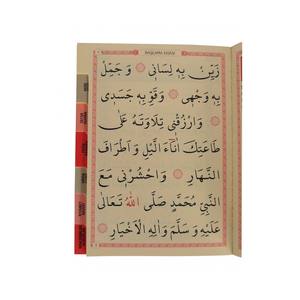 BAŞLAMA DUASI
زَيِّنْ بِهِ لِسَانِي ۞ وَجَمِّلْ
بِهِ وَجْهِي ۞ وَقَوِّ بِهِ جَسَدِي
۞ وَارْزُقْنِي تِلَاوَتَهُ عَلَى
طَاعَتِكَ اٰنَاءَ الَّيْلِ وَاَطْرَافَ
النَّهَارِ ۞ وَاحْشُرْنِي مَعَ
النَّبِيِّ مُحَمَّدٍ صَلَّى اللّٰهُ تَعَالٰى
عَلَيْهِ وَسَلَّمَ وَاٰلِهِ الْاَخْيَارِ